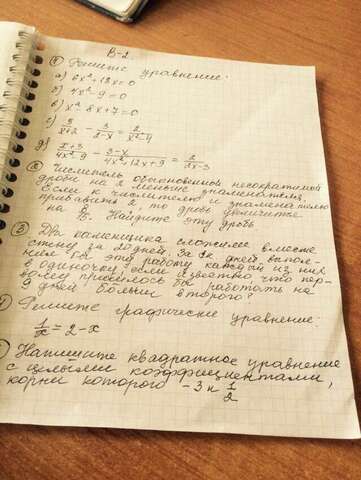 В-2.
① Решите уравнение:
а) 6x²+18x=0
б) 4x²-9=0
в) x²-8x+7=0
с) 3/x+2 - 3/2-x = 2/x²-4
д) x+3/4x²-9 - 3-x/4x²+12x+9 = 2/2x-3
② Числитель обыкновенной несократимой
дроби на 2 меньше знаменателя.
Если к числителю и знаменателю
прибавить 2 то дробь увеличится
на Найдите эту дробь
③ Два каменщика сложили вместе
стену за 20 дней. За ск дней выпол-
нил бы эту работу каждый из них
в одиночку, если известно что пер-
вому пришлось бы работать на
9 дней больше второго?
Решите графически уравнение:
1/x = 2-x
Напишите квадратное уравнение
с целыми коэффициентами,
корни которого -3 и 1/2